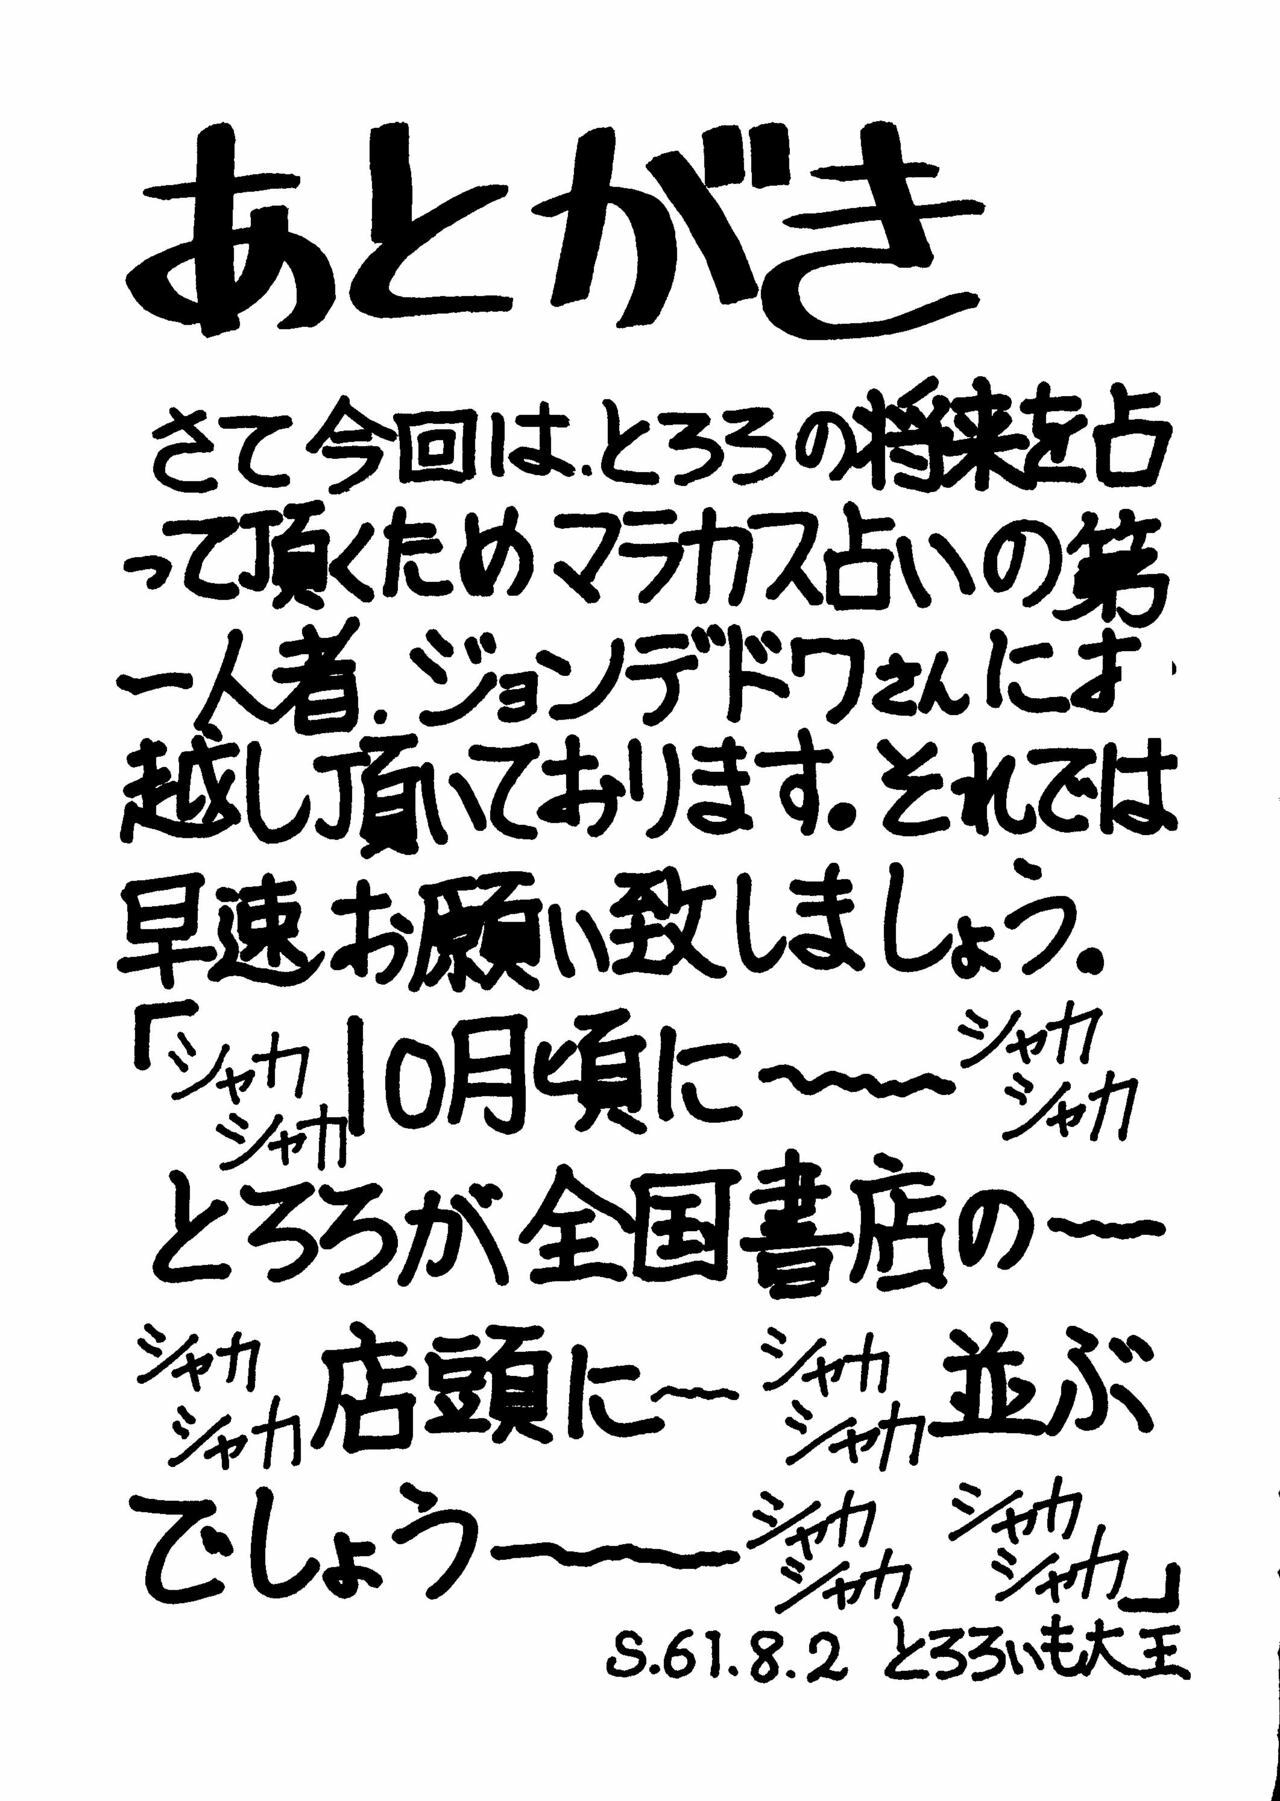 あとがき
さて今回は、とろろの将来を占
って頂くためマラカス占いの第
一人者、ジョンデドワさんにお
越し頂いております。それでは
早速お願い致しましょう。
「シャカシャカ10月頃に〜〜シャカシャカ
とろろが全国書店の〜
シャカシャカ店頭に〜シャカシャカ並ぶ
でしょう〜〜シャカシャカ シャカシャカ」
S.61.8.2 とろろいも大王